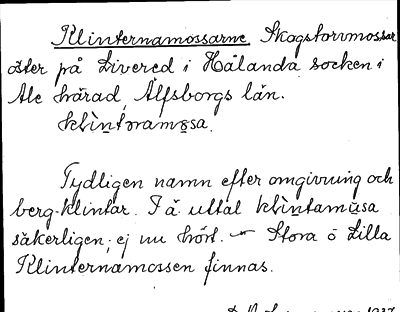 Klinternamossarne Skogstorvmossar
öster på Livered i Hålanda socken i
Ale härad, Älfsborgs län.
Tydligen namn efter omgivning och
berg-klintar. I ä. uttal
säkerligen, ej nu hört. — Stora o Lilla
Klinternamossen finnas.